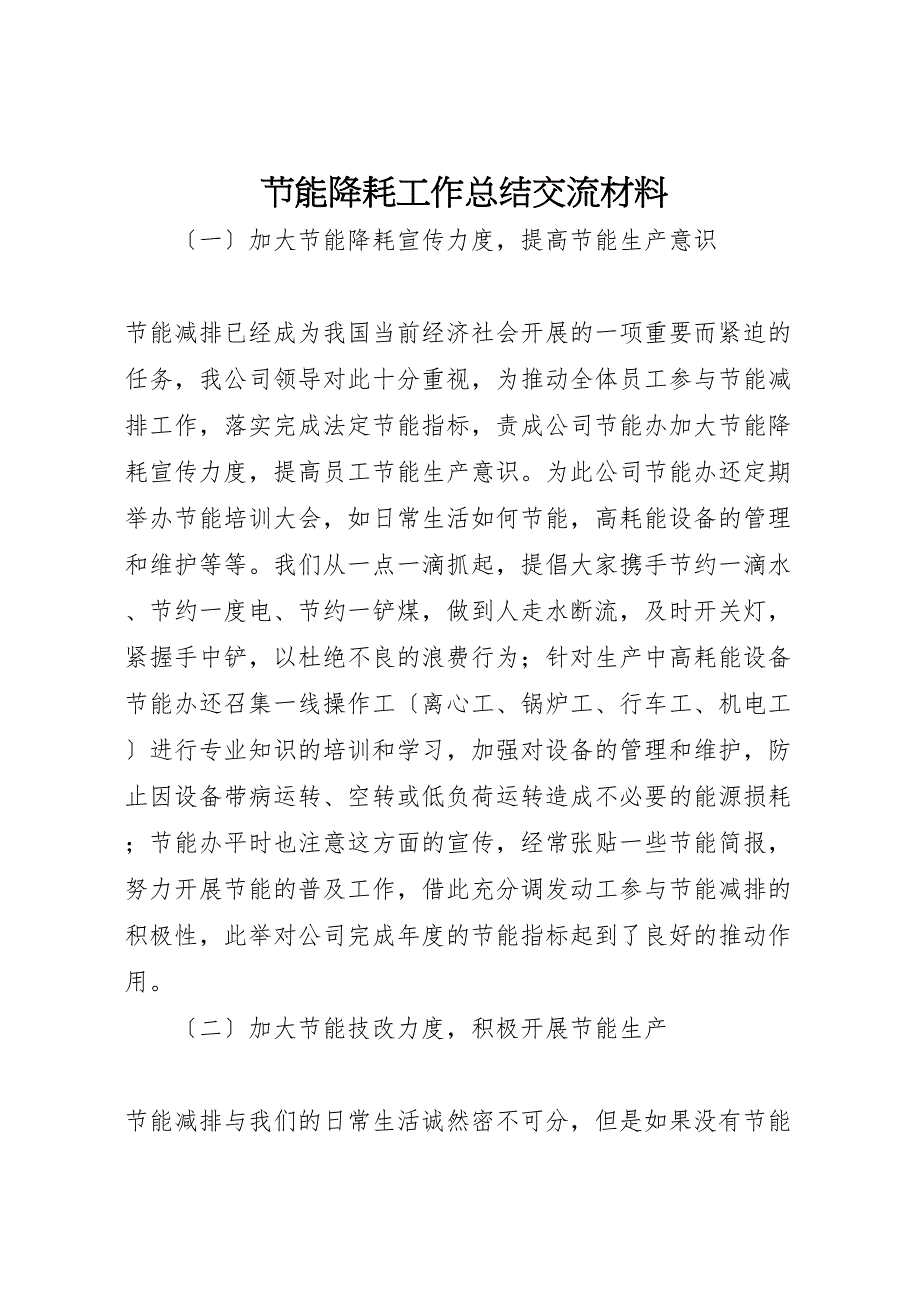 节能降耗工作总结交流材料
〔一〕加大节能降耗宣传力度，提高节能生产意识
节能减排已经成为我国当前经济社会开展的一项重要而紧迫的
任务，我公司领导对此十分重视，为推动全体员工参与节能减
排工作，落实完成法定节能指标，责成公司节能办加大节能降
耗宣传力度，提高员工节能生产意识。为此公司节能办还定期
举办节能培训大会，如日常生活如何节能，高耗能设备的管理
和维护等等。我们从一点一滴抓起，提倡大家携手节约一滴水
、节约一度电、节约一铲煤，做到人走水断流，及时开关灯，
紧握手中铲，以杜绝不良的浪费行为；针对生产中高耗能设备
节能办还召集一线操作工〔离心工、锅炉工、行车工、机电工
〕进行专业知识的培训和学习，加强对设备的管理和维护，防
止因设备带病运转、空转或低负荷运转造成不必要的能源损耗
；节能办平时也注意这方面的宣传，经常张贴一些节能简报，
努力开展节能的普及工作，借此充分调发动工参与节能减排的
积极性，此举对公司完成年度的节能指标起到了良好的推动作
用。
〔二〕加大节能技改力度，积极开展节能生产
节能减排与我们的日常生活诚然密不可分，但是如果没有节能